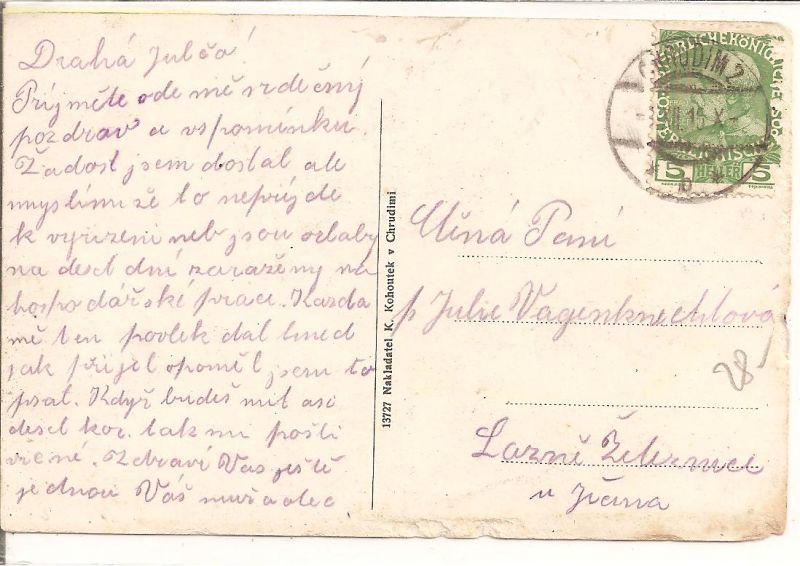 Drahá Julčo!
Prijměte ode mě srdečný
pozdrav a vspomínku.
Žádost jsem dostal ale
myslím že to nepríjde
k vyrízeni neb jsou
na deset dní zaraženy na
hospodářské prace.
mě ten povlek dal hned
jak přijel opoměl jsem to
psat. Když budeš mit asi
deset kor. tak mi pošli
Zdraví Vas ještě
jednou Váš
13727 Nakladatel K. Kohoutek v Chrudimi
CHRUDIM 2
5 HELLER 5
Ctěná Paní
p Julie Vagenknechtová
28
Lazně Železnice
u Jičina